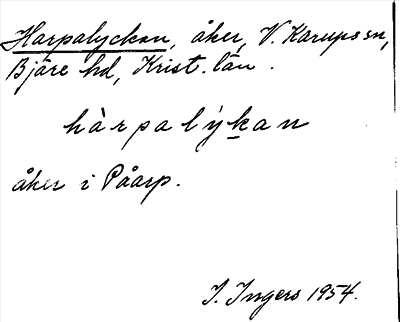 Harpalyckan, åker, V. Karups sn,
Bjäre hd, Krist. län.
hàrpalýkan
åker i Påarp.
I. Ingers 1954.